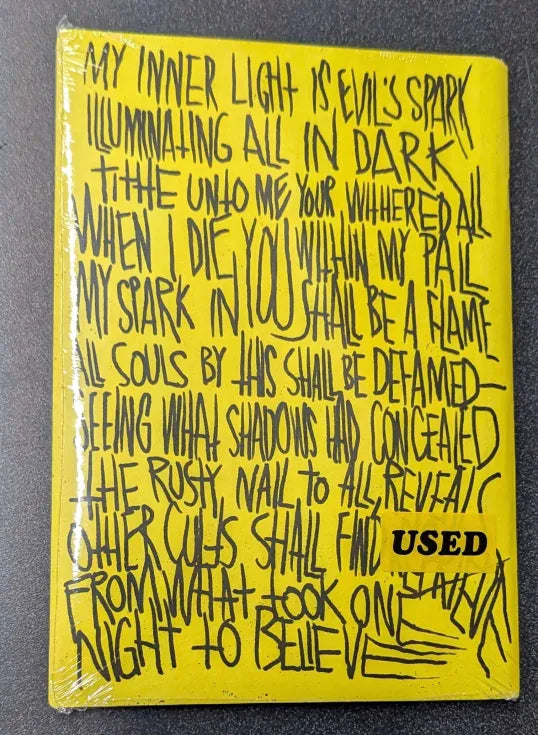 MY INNER LIGHT IS EVIL'S SPARK
ILLUMINATING ALL IN DARK
TITHE UNTO ME YOUR WITHERED ALL
WHEN I DIE, YOU WITHIN MY PALL
MY SPARK IN YOU SHALL BE A FLAME
ALL SOULS BY THIS SHALL BE DEFAMED—
SEEING WHAT SHADOWS HAD CONCEALED
THE RUSTY NAIL TO ALL, REVEALS
OTHER CULTS SHALL FIND
USED
FROM WHAT TOOK ONE
NIGHT TO BELIEVE